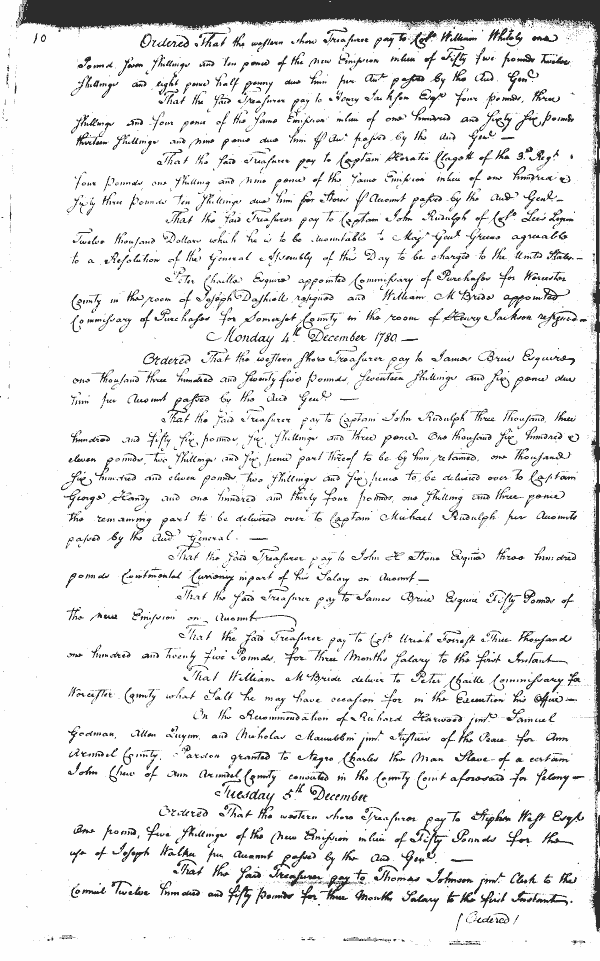 10
Ordered That the western Shore Treasurer pay to Colo. William Whitely one
Pound, seven Shillings and ten pence of the new Emission in lieu of Fifty five pounds twelve
Shillings and eight pence half penny due him per Acct. passed by the Aud. Genl.
That the said Treasurer pay to Henry Jackson Esqr. four pounds, three
Shillings and four pence of the same Emission in lieu of one hundred and sixty six pounds
thirteen Shillings and nine pence due him Acct. passed by the Aud Genl. —
That the said Treasurer pay to Captain Horatio Clagett of the 3d. Regt.
four pounds one shilling and nine pence of the same Emission in lieu of one hundred &
sixty three pounds ten Shillings due him for Stores Account passed by the Aud Genl. —
That the said Treasurer pay to Captain John Rudulph of Colo. Lees Legion
Twelve thousand Dollars which he is to be accountable to Maj. Genl. Greene agreeable
to a Resolution of the General Assembly of this Day to be charged to the United States —
Peter Chaille Esquire appointed Commissary of Purchases for Worcester
County in the room of Joseph Dashiell resigned and William McBride appointed
Commissary of Purchases for Somerset County in the room of Henry Jackson resigned —
Monday 4th December 1780 —
Ordered That the western Shore Treasurer pay to James Brice Esquire
one thousand three hundred and seventy five pounds, seventeen Shillings and six pence due
him per Account passed by the Aud Genl. —
That the said Treasurer pay to Captain John Rudulph three thousand, three
hundred and fifty six pounds, six Shillings and three pence One thousand six hundred &
eleven pounds two Shillings and six pence part thereof to be by him retained, one thousand
six hundred and eleven pounds two Shillings and six pence to be delivered over to Captain
George Handy and one hundred and thirty four pounds, one Shilling and three pence
the remaining part to be delivered over to Captain Michael Rudulph per Accounts
passed by the Aud General. —
That the said Treasurer pay to John H Stone Esquire three hundred
pounds Continental Currency in part of his Salary on Account —
That the said Treasurer pay to James Brice Esquire Fifty Pounds of
the new Emission on Account
That the said Treasurer pay to Colo. Uriah Forrest Three thousand
one hundred and twenty five Pounds, for three Months Salary to the first Instant
That William McBride deliver to Peter Chaille Commissary for
Worcester County what Salt he may have occasion for in the Execution his Office —
On the Recommendation of Richard Harwood junr. Samuel
Godman, Allen Quynn, and Nicholas Maccubbin junr. Justices of the Peace for Ann
Arundel County. Pardon granted to Negro Charles the Man Slave of a certain
John Chew of Ann Arundel County convicted in the County Court aforesaid for felony —
Tuesday 5th December
Ordered That the western Shore Treasurer pay to Stephen West Esqr.
One pound, five Shillings of the New Emission in lieu of Fifty Pounds for the
use of Joseph Walker per Account passed by the Aud. Genl. —
That the said Treasurer pay to Thomas Johnson junr. Clerk to the
Council Twelve hundred and fifty pounds for three Months Salary to the first Instant.
(Ordered)